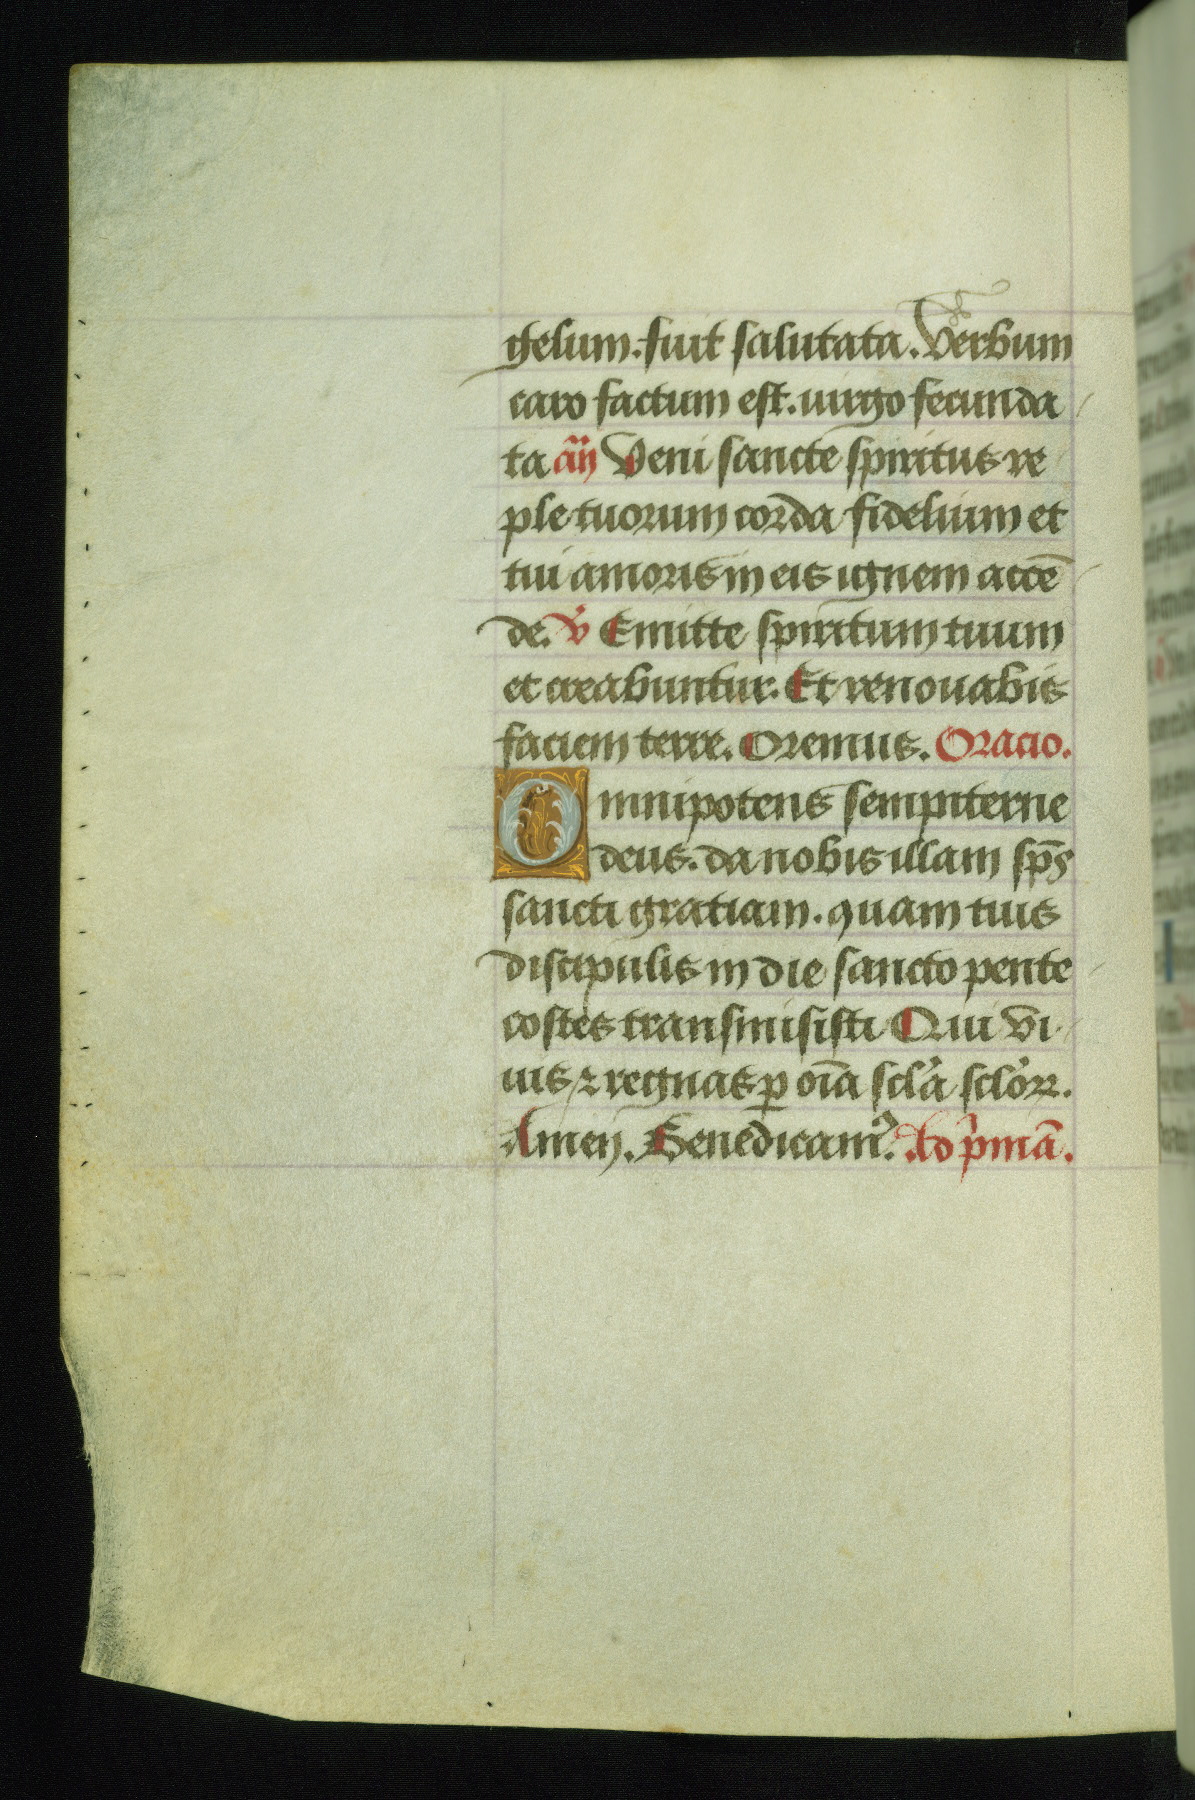 gelum. fuit salutata. Verbum
caro factum est. uirgo fecunda
ta an̄ Veni sancte spiritus re
ple tuorum corda fidelium et
tui amoris in eis ignem accē
de. v̓ Emitte spiritum tuum
et creabuntur. Et renouabis
faciem terre. Oremus. Oracio.
Omnipotens sempiterne
deus. da nobis illam sp̄s
sancti gratiam. quam tuis
discipulis in die sancto pente
costes transmisisti Qui vi
uis ⁊ regnas ꝑ oīa scl̓a scl̓oꝝ.
Amen. Benedicamꝰ. Ad p̓mā.